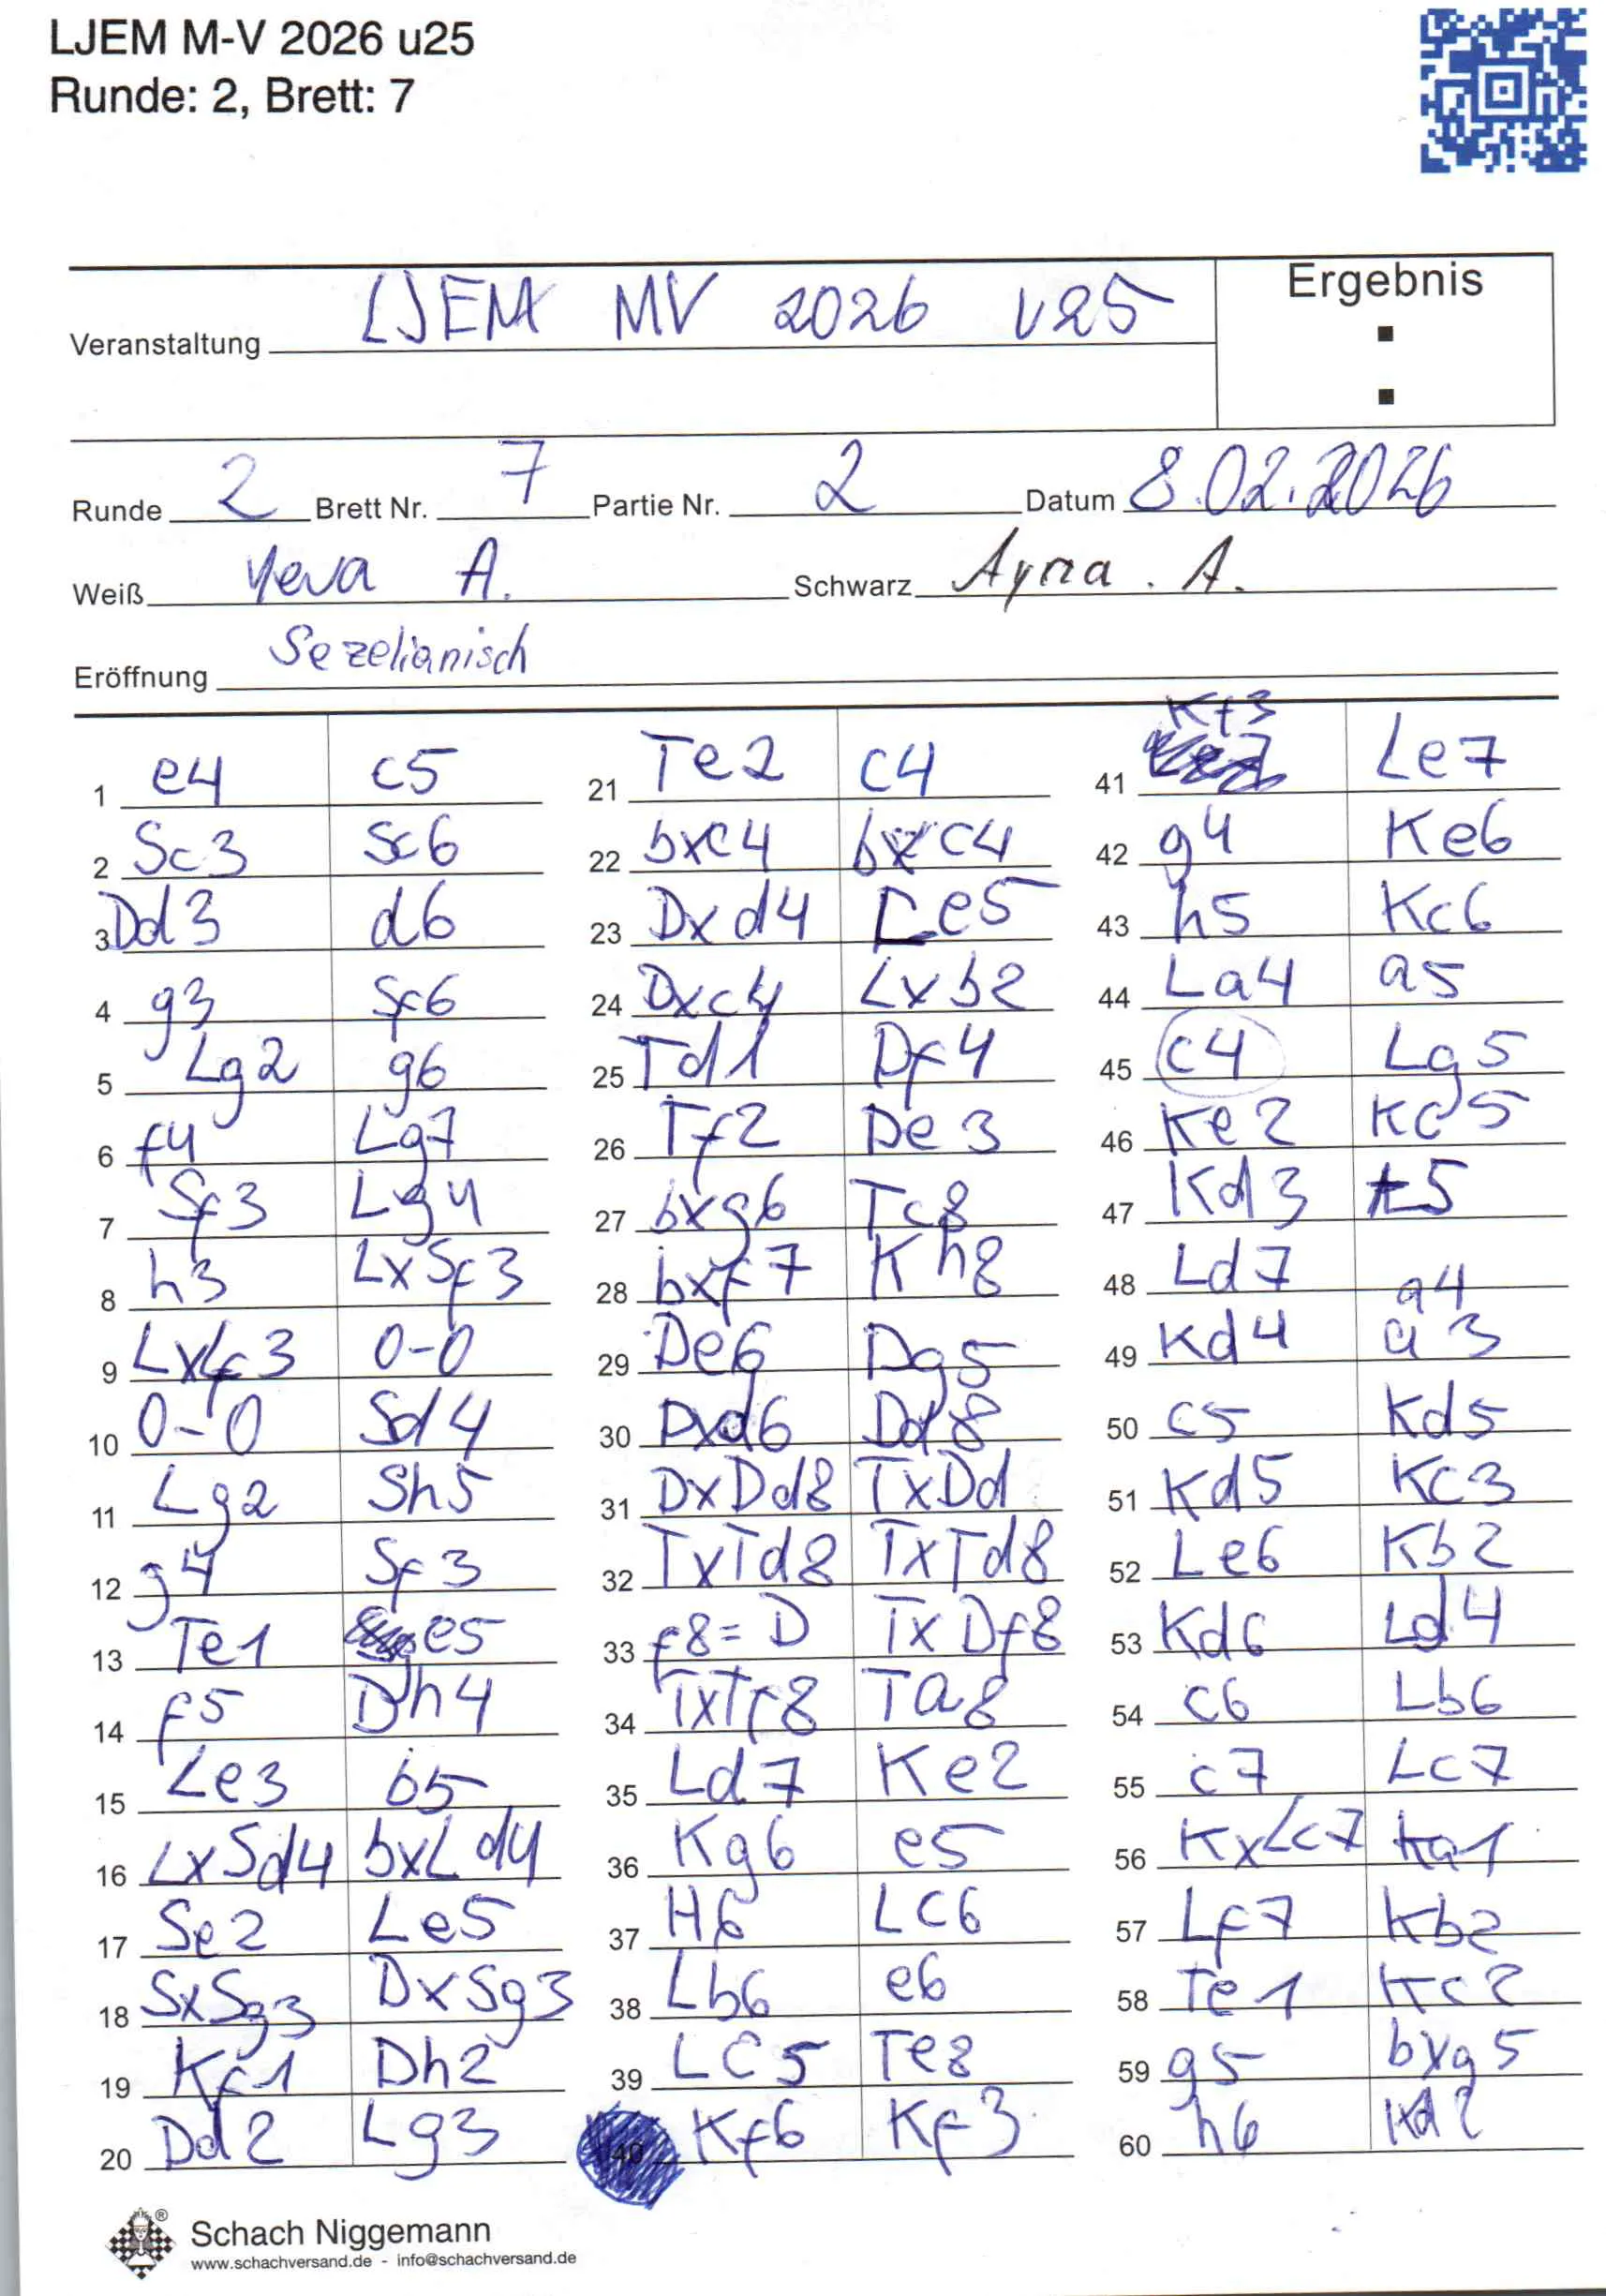 LJEM M-V 2026 u25
Runde: 2, Brett: 7
Ergebnis
Veranstaltung LJEM MV 2026 u25
Runde 2 Brett Nr. 7 Partie Nr. 2 Datum 8.02.2026
Weiß Yeva A. Schwarz Ayna . A.
Eröffnung Sezelianisch
1 e4 c5
2 Sc3 Sc6
3 Dd3 d6
4 g3 Sf6
5 Lg2 g6
6 f4 Lg7
7 Sf3 Lg4
8 h3 LxSf3
9 Lxf3 0-0
10 0-0 Sd4
11 Lg2 Sh5
12 g4 Sf3
13 Te1 e5
14 f5 Dh4
15 Le3 b5
16 LxSd4 bxLd4
17 Se2 Le5
18 SxSg3 DxSg3
19 Kf1 Dh2
20 Dd2 Lg3
21 Te2 c4
22 bxc4 bxc4
23 Dxd4 Le5
24 Dxc4 Lxb2
25 Td1 Df4
26 Tf2 De3
27 bxg6 Tc8
28 bxf7 Kh8
29 De6 Dg5
30 Dxd6 Dd8
31 DxDd8 TxDd
32 TxTd8 TxTd8
33 f8=D TxDf8
34 TxTf8 Ta8
35 Ld7 Ke2
36 Kg6 e5
37 H6 LC6
38 Lb6 e6
39 LC5 Te8
40 Kf6 Kf3
41 Kf3 Le7
42 g4 Ke6
43 h5 Kc6
44 La4 a5
45 c4 Lg5
46 Ke2 Kc5
47 Kd3 t5
48 Ld7 a4
49 Kd4 a3
50 c5 Kd5
51 Kd5 Kc3
52 Le6 Kb2
53 Kd6 Ld4
54 c6 Lb6
55 c7 Lc7
56 KxLc7 ka1
57 Lf7 Kb2
58 Te1 Kc2
59 g5 bxg5
60 h6 Kd2
Schach Niggemann
www.schachversand.de - info@schachversand.de